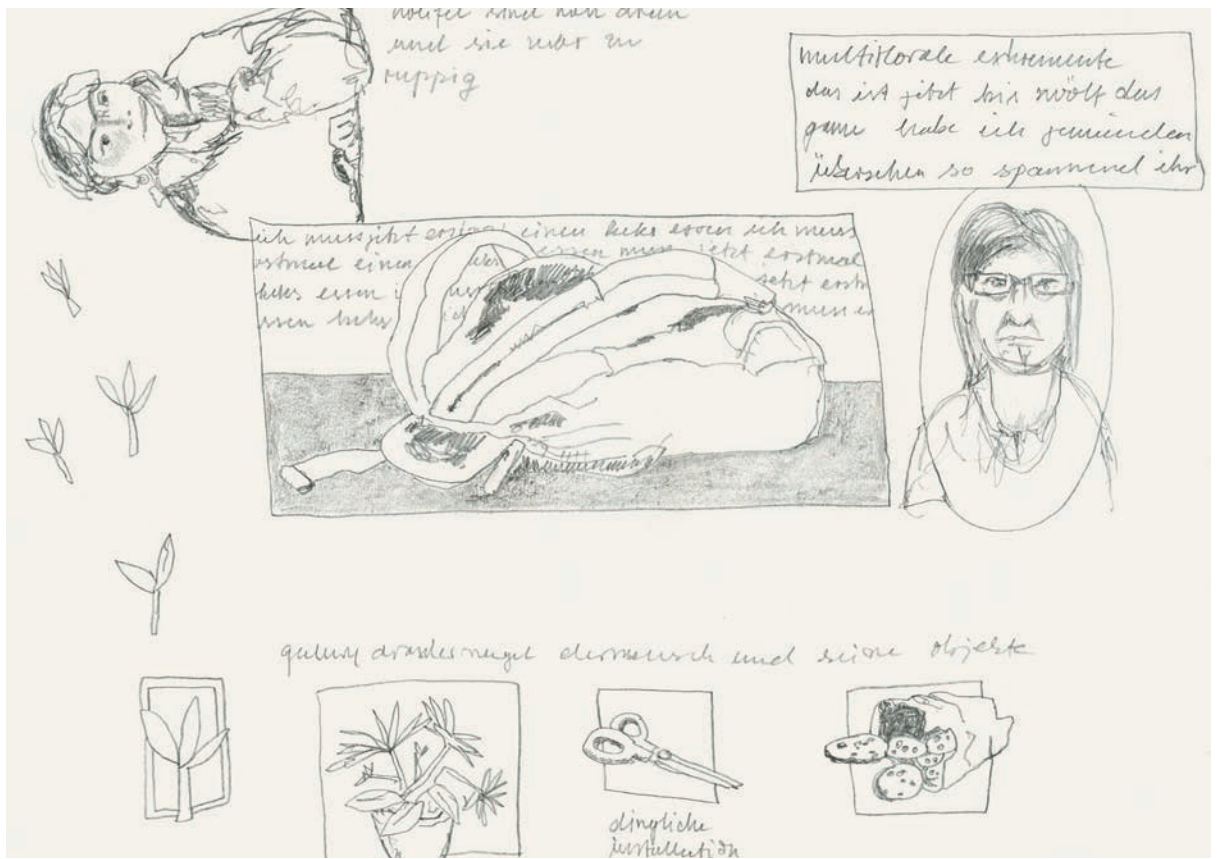 sind nun dran
und sie
ruppig
multiflorale exkremente
das ist jetzt bis zwölf das
ganze habe ich
übersehen so spannend ihr
ich muss jetzt erstmal einen keks essen ich muss
erstmal einen keks essen muss jetzt erstmal
keks essen jetzt erstm
essen keks ich muss es
der mensch und seine objekte
dingliche
installation